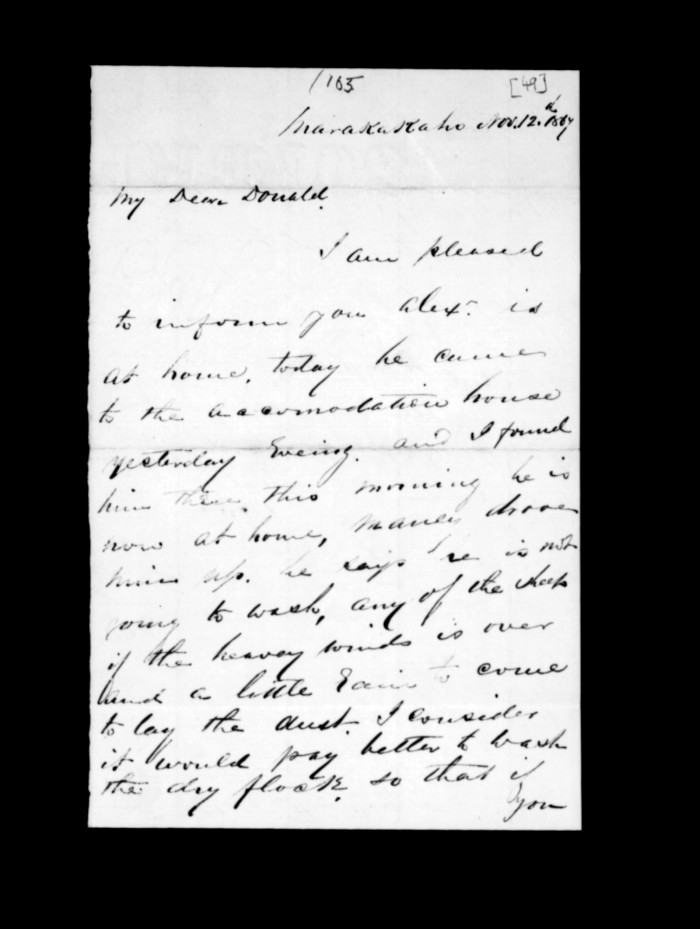 165
[49]
Marakakaho Nov. 12.d 1867
My Dear Donald.
I am pleased
to inform you Alexr. is
at home. today he came
to the accomodation house
yesterday Eveing. and I found
him there this morning he is
now at home, Maney drove
him up. he says he is not
going to wash, any of the sheep
if the heavey winds is over
and a little Rain to come
to lay the dust. I consider
it would pay better to wash
the dry flock. so that if
you